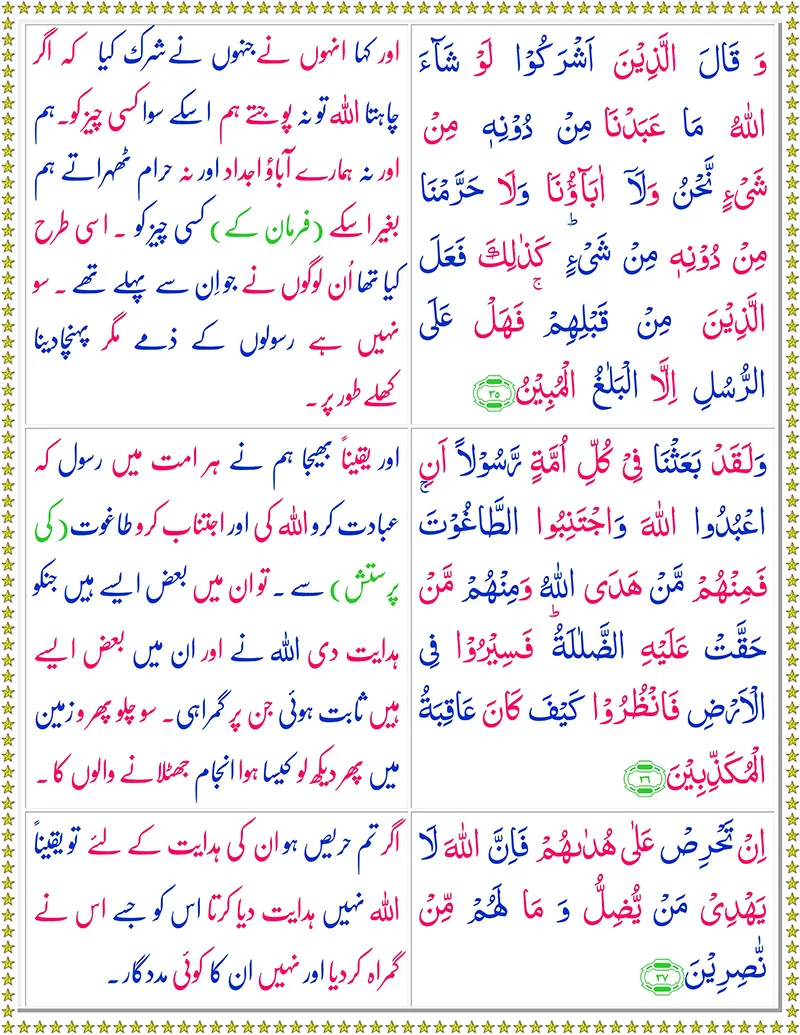 وَ قَالَ الَّذِیْنَ اَشْرَكُوْا لَوْ شَآءَ
اللهُ مَا عَبَدْنَا مِنْ دُوْنِهٖ مِنْ
شَیْءٍ نَّحْنُ وَلَاۤ اٰبَآؤُنَا وَلَا حَرَّمْنَا
مِنْ دُوْنِهٖ مِنْ شَیْءٍ ؕ كَذٰلِكَ فَعَلَ
الَّذِیْنَ مِنْ قَبْلِهِمْ ۚ فَهَلْ عَلَی
الرُّسُلِ اِلَّا الْبَلٰغُ الْمُبِیْنُ ۳۵
اور کہا انہوں نے جنہوں نے شرک کیا کہ اگر
چاہتا اللہ تو نہ پوجتے ہم اسکے سوا کسی چیز کو۔ ہم
اور نہ ہمارے آباؤ اجداد اور نہ حرام ٹھہراتے ہم
بغیر اسکے (فرمان کے) کسی چیز کو ۔ اسی طرح
کیا تھا اُن لوگوں نے جو اِن سے پہلے تھے ۔ سو
نہیں ہے رسولوں کے ذمے مگر پہنچا دینا
کھلے طور پر ۔
وَلَقَدْ بَعَثْنَا فِیْ كُلِّ اُمَّةٍ رَّسُوْلًا اَنِ
اعْبُدُوا اللهَ وَاجْتَنِبُوا الطَّاغُوْتَ ۚ
فَمِنْهُمْ مَّنْ هَدَی اللهُ وَمِنْهُمْ مَّنْ
حَقَّتْ عَلَیْهِ الضَّلٰلَةُ ؕ فَسِیْرُوْا فِی
الْاَرْضِ فَانْظُرُوْا كَیْفَ كَانَ عَاقِبَةُ
الْمُكَذِّبِیْنَ ۳۶
اور یقیناً بھیجا ہم نے ہر امت میں رسول کہ
عبادت کرو اللہ کی اور اجتناب کرو طاغوت (کی
پرستش) سے ۔ تو ان میں بعض ایسے ہیں جنکو
ہدایت دی اللہ نے اور ان میں بعض ایسے
ہیں ثابت ہوئی جن پر گمراہی۔ سو چلو پھرو زمین
میں پھر دیکھ لو کیسا ہوا انجام جھٹلانے والوں کا ۔
اِنْ تَحْرِصْ عَلٰی هُدٰىهُمْ فَاِنَّ اللهَ لَا
یَهْدِیْ مَنْ یُّضِلُّ وَ مَا لَهُمْ مِّنْ
نّٰصِرِیْنَ ۳۷
اگر تم حریص ہو ان کی ہدایت کے لئے تو یقیناً
اللہ نہیں ہدایت دیا کرتا اس کو جسے اس نے
گمراہ کر دیا اور نہیں ان کا کوئی مددگار ۔